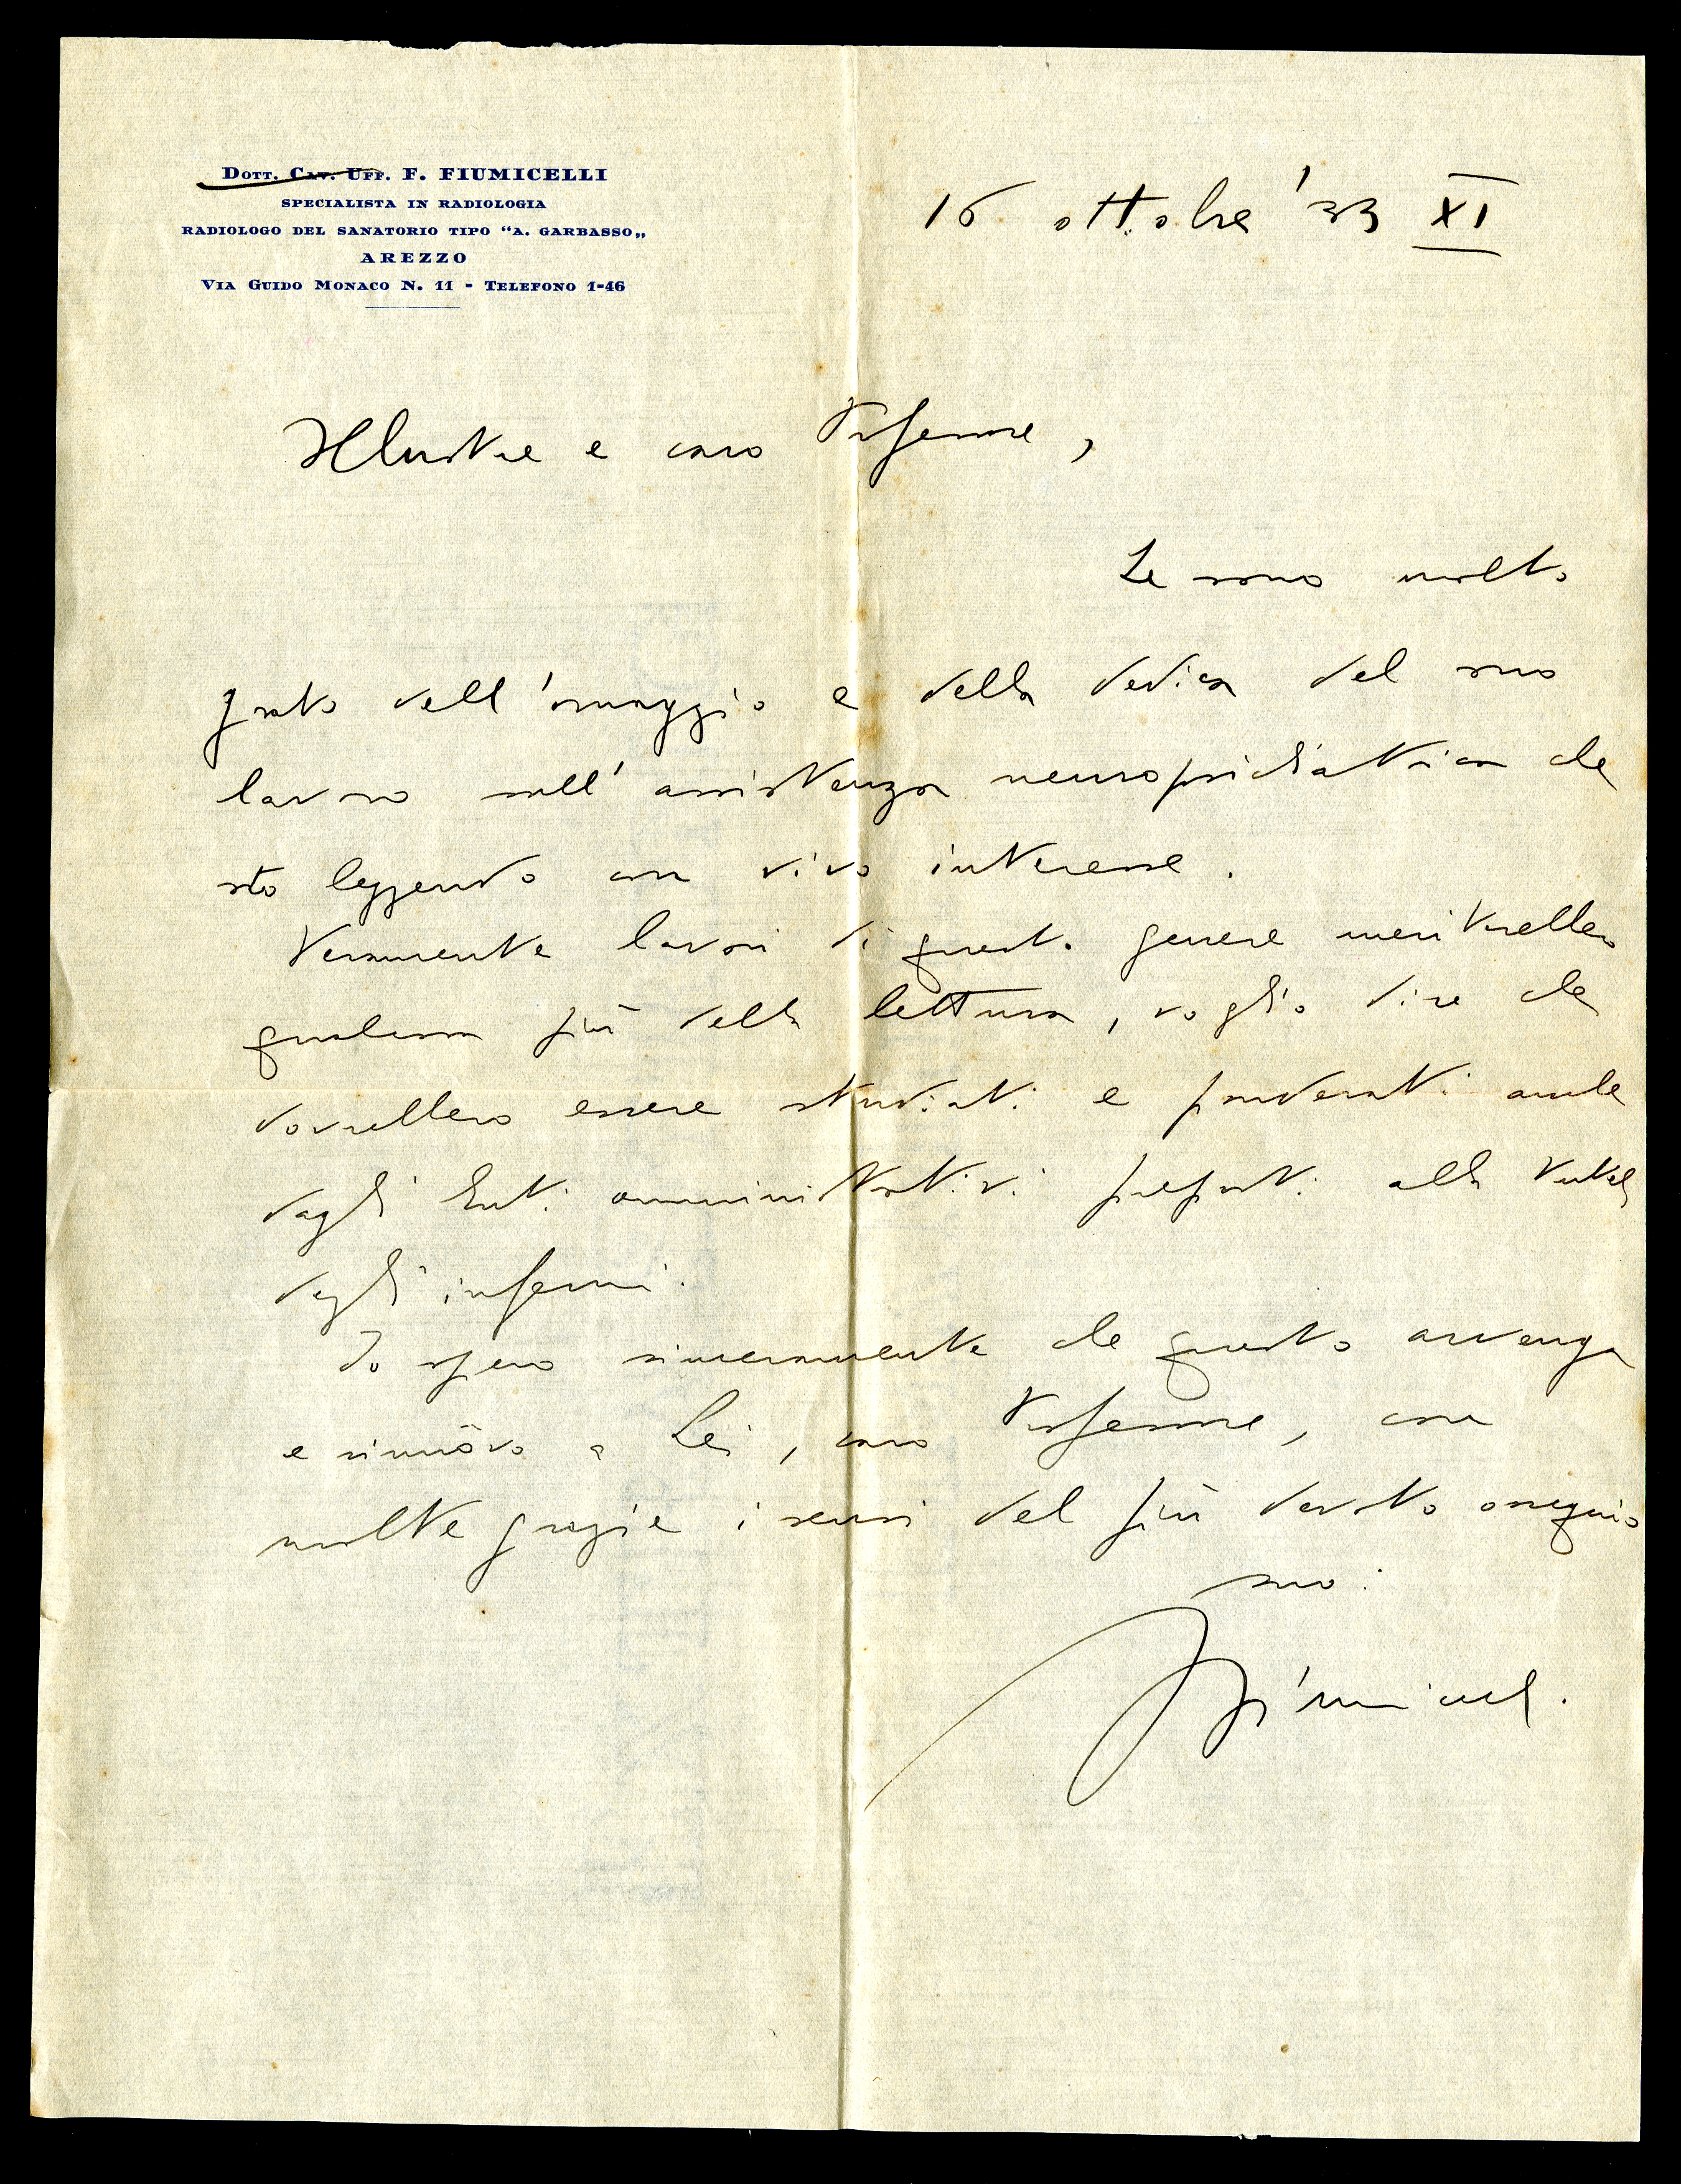 DOTT. CAV. UFF. F. FIUMICELLI
SPECIALISTA IN RADIOLOGIA
RADIOLOGO DEL SANATORIO TIPO “A. GARBASSO„
AREZZO
VIA GUIDO MONACO N. 11 - TELEFONO 1-46
16 ottobre '33 XI
Illustre e caro Professore,
Le sono molto
grato dell'omaggio e della dedica del suo
lavoro sull'assistenza neuropsichiatrica che
sto leggendo con vivo interesse.
Veramente lavori di questo genere meriterebbero
qualcosa più della lettura, voglio dire che
dovrebbero essere studiati e ponderati anche
dagli Enti amministrativi preposti alla tutela
degli infermi.
Io spero sinceramente che questo avvenga
e rinnovo a Lei, caro Professore, con
molte grazie i sensi del più devoto ossequio
suo:
Fiumicelli